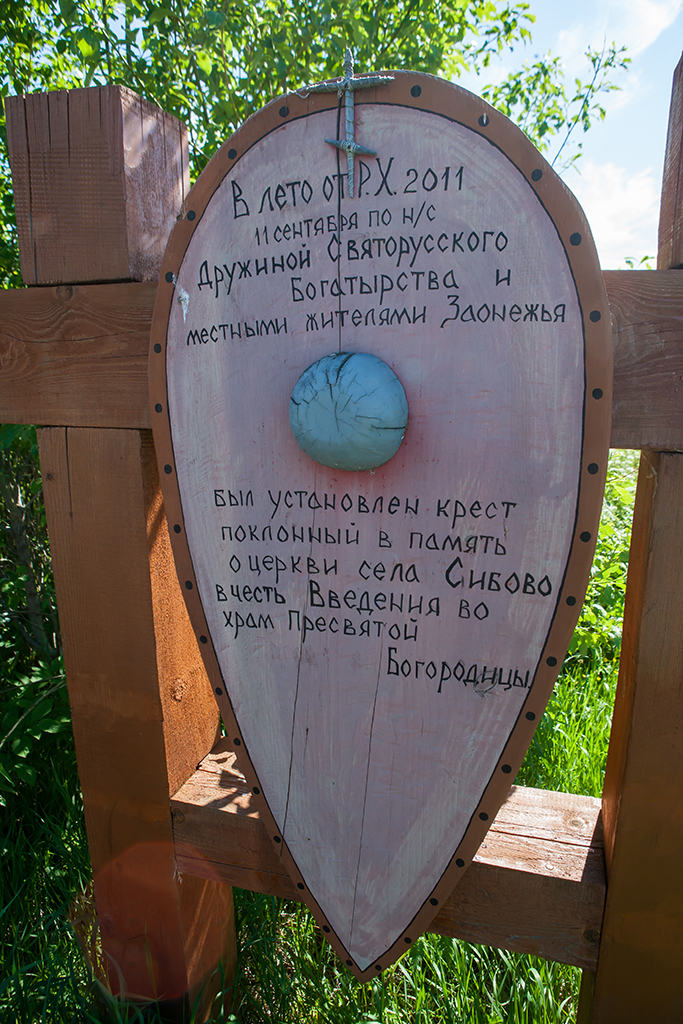 В лето от Р.Х. 2011
11 сентября по н/с
Дружиной Святорусского
Богатырства и
местными жителями Заонежья
был установлен крест
поклонный в память
о церкви села Сибово
в честь Введения во
храм Пресвятой
Богородицы.